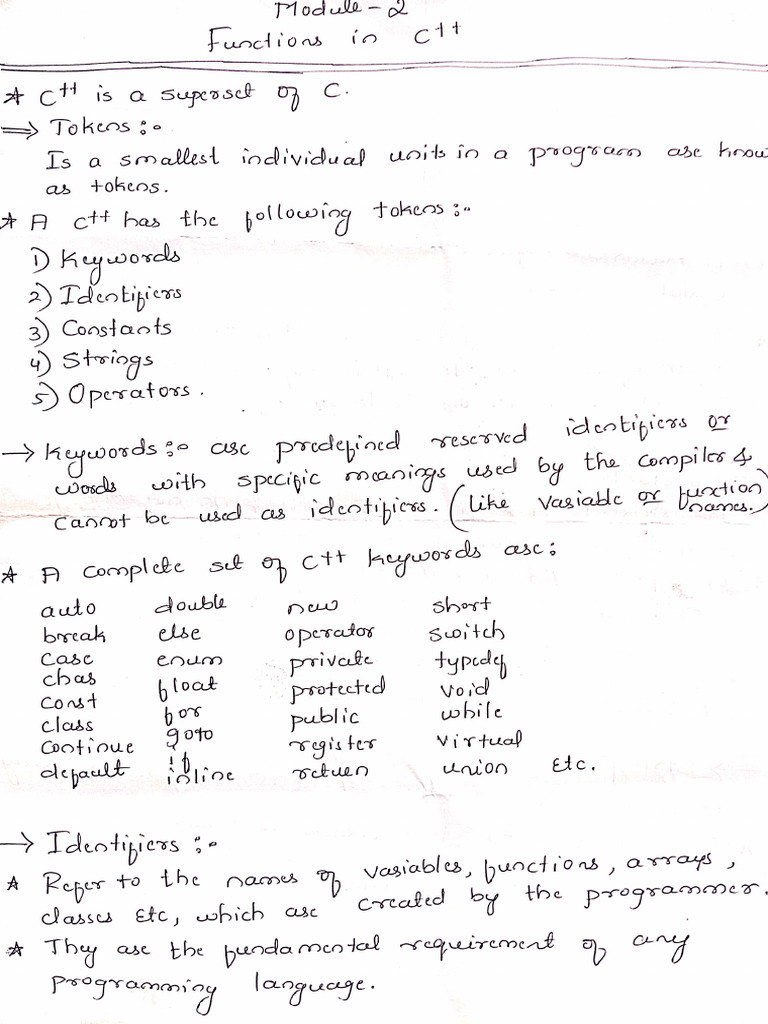 Module - 2
Functions in C++
* C++ is a superset of C.
⇒ Tokens :-
Is a smallest individual units in a program are know
as tokens.
* A C++ has the following tokens :-
1) Keywords
2) Identifiers
3) Constants
4) Strings
5) Operators.
→ Keywords :- are predefined reserved identifiers or
words with specific meanings used by the compiler &
cannot be used as identifiers. (like variable or function
names.)
* A complete set of C++ keywords are :
auto double new short
break else operator switch
case enum private typedef
char float protected void
const for public while
class goto register virtual
continue if return union Etc.
default inline
→ Identifiers :-
* Refer to the names of variables, functions, arrays,
classes Etc, which are created by the programmer.
* They are the fundamental requirement of any
programming language.